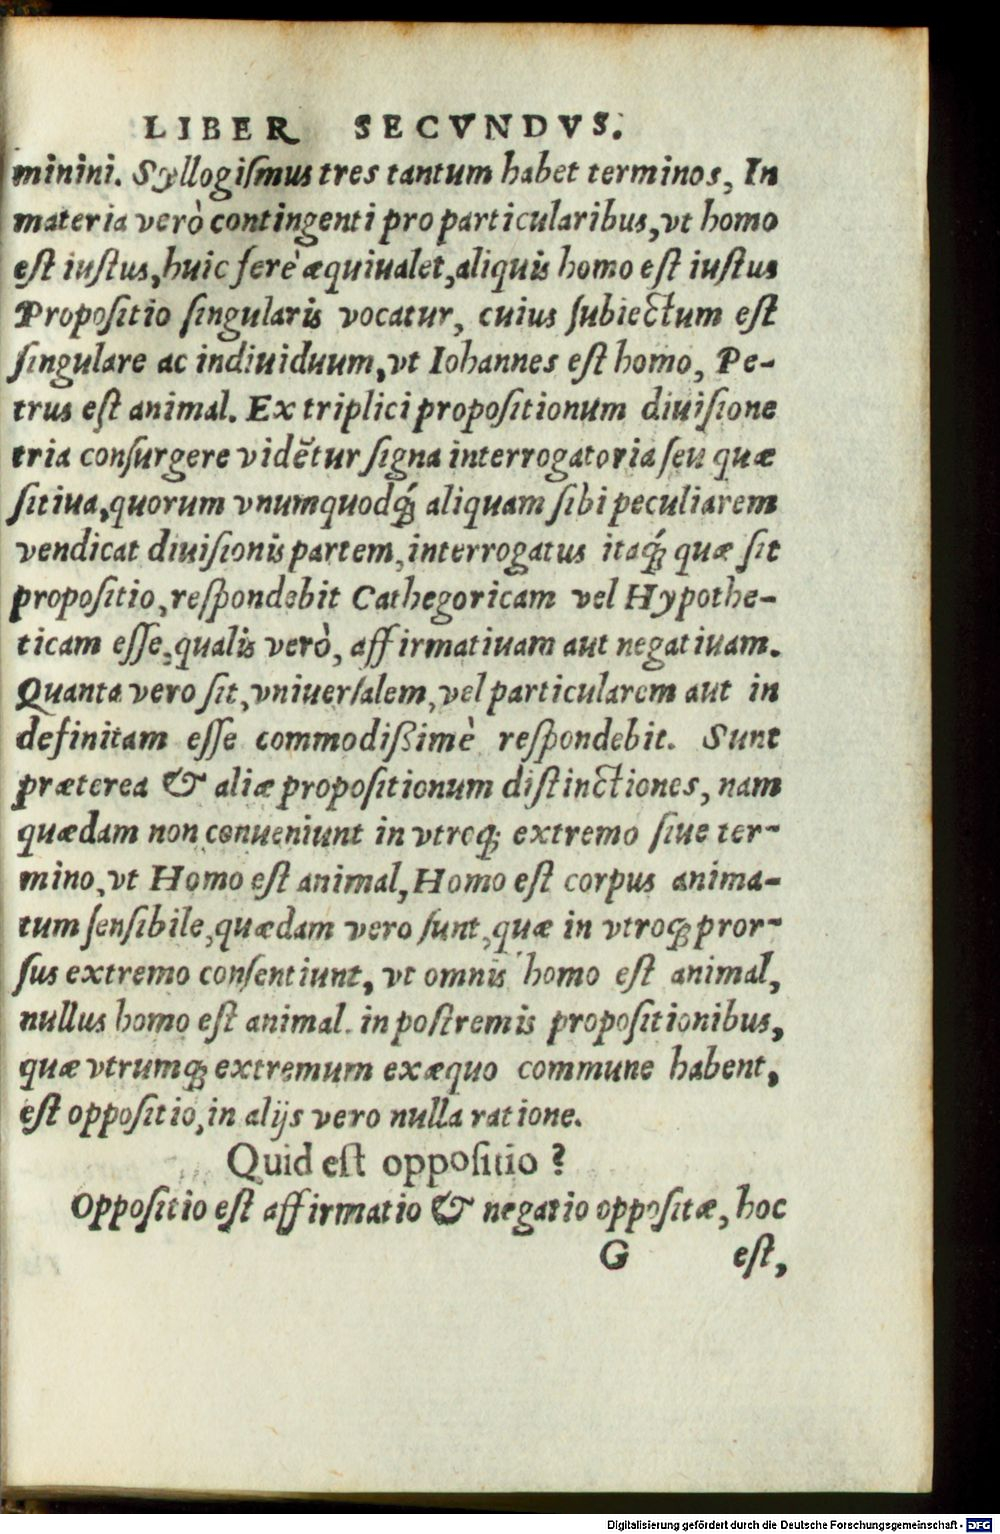 LIBER SECVNDVS.
minini. Syllogiſmus tres tantum habet terminos, In
materia verò contingenti pro particularibus, vt homo
eſt iuſtus, huic ferè æquiualet, aliquis homo eſt iuſtus
Propoſitio ſingularis vocatur, cuius ſubiectum eſt
ſingulare ac indiuiduum, vt Iohannes eſt homo, Pe-
trus eſt animal. Ex triplici propoſitionum diuiſione
tria conſurgere vidẽtur ſigna interrogatoria ſeu quæ
ſitiua, quorum vnumquodq́; aliquam ſibi peculiarem
vendicat diuiſionis partem, interrogatus itaq́; quæ ſit
propoſitio, reſpondebit Cathegoricam vel Hypothe-
ticam eſſe, qualis verò, affirmatiuam aut negatiuam.
Quanta vero ſit, vniuerſalem, vel particularem aut in
definitam eſſe commodißimè reſpondebit. Sunt
præterea & aliæ propoſitionum diſtinctiones, nam
quædam non conueniunt in vtroq; extremo ſiue ter-
mino, vt Homo eſt animal, Homo eſt corpus anima-
tum ſenſibile, quædam vero ſunt, quæ in vtroq; pror-
ſus extremo conſentiunt, vt omnis homo eſt animal,
nullus homo eſt animal. in poſtremis propoſitionibus,
quæ vtrumq; extremum exæquo commune habent,
eſt oppoſitio, in alijs vero nulla ratione.
Quid eſt oppoſitio?
Oppoſitio eſt affirmatio & negatio oppoſitæ, hoc
G eſt,
Digitalisierung gefördert durch die Deutsche Forschungsgemeinschaft - DFG